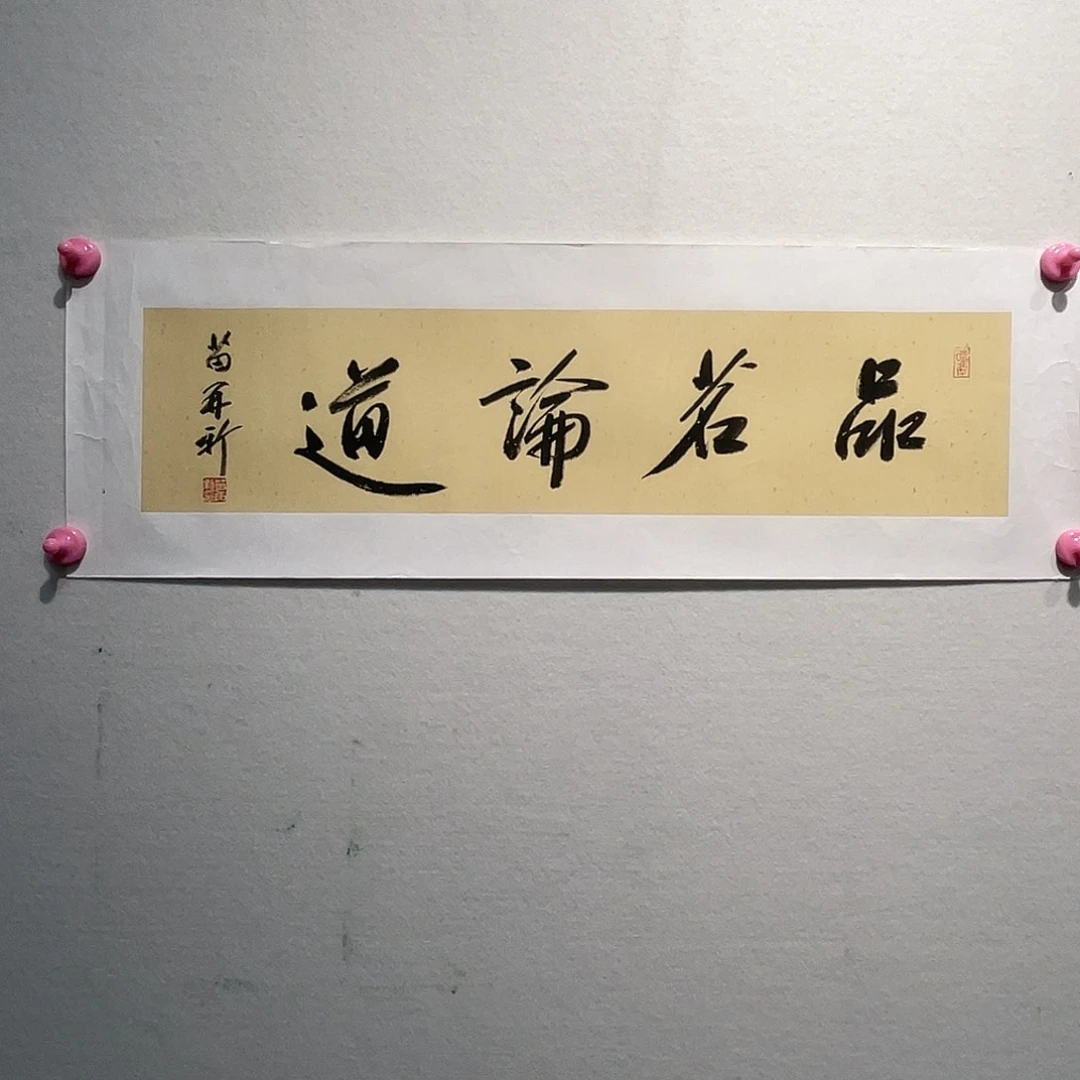 品茗論道
苗再新